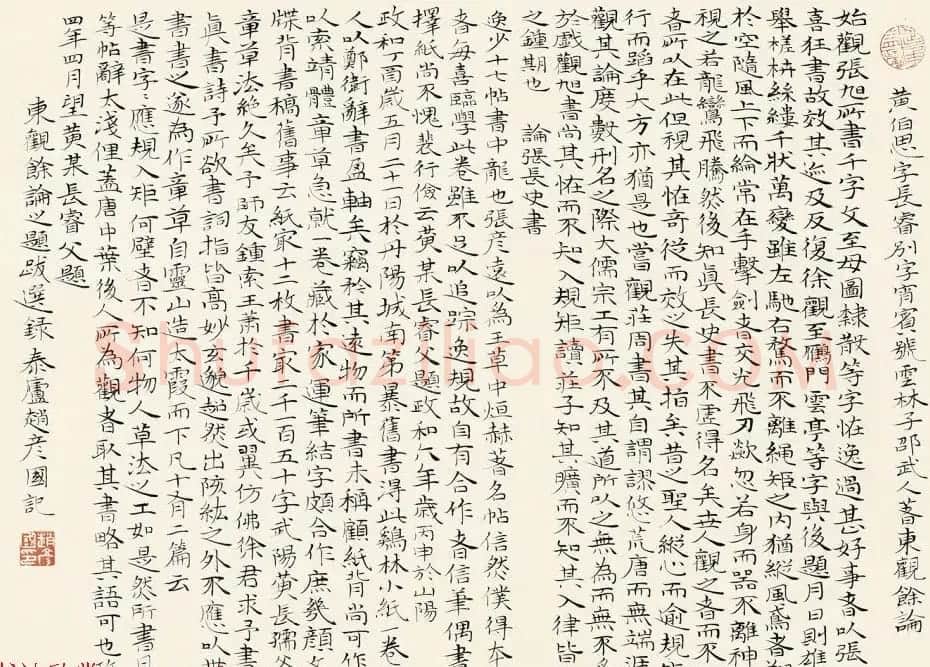 黄伯思字長睿別字霄賓號雲林子邵武人著東觀餘論
始觀張旭所書千字文至母圖隸散等字恠逸過甚好事者以張
喜狂書故效其迹及反復徐觀至鴈門雲亭等字與後題月日則雄
舉槎枿絲縷千狀萬變雖左馳右鶩而不離繩矩之內猶縱風鳶者
於空隨風上下而綸常在手擊劍者交光飛刃歘忽若身而器不離神
視之若龍鸞飛騰然後知眞長史書不虛得名矣世人觀之者而不
者所以在此但視其恠奇從而效之失其指矣昔之聖人縱心而俞規
行而蹈乎大方亦猶是也嘗觀莊周書其自謂謬悠荒唐而無端涯
觀其論度數刑名之際大儒宗工有所不及其道所以之無為而無不
於戲觀旭書尚其恠而不知入規矩讀莊子知其曠而不知其入律皆
之鍾期也 論張長史書
逸少十七帖書中龍也張彥遠以為王草中烜赫著名帖信然僕得本
者每喜臨學此卷雖不足以追踪逸規故自有合作者信筆偶書
擇紙尚不愧裴行儉云黄某長睿父題政和六年歲丙申於山陽
政和丁酉歲五月二十一日於丹陽城南第暴舊書得此鷄林小紙一卷
人以鄭衛辭書盈軸矣竊矜其遠物而所書未稱顧紙背尚可作
以索靖體章草急就一卷藏於家運筆結字頗合作庶幾顏
牒背書稿舊事云紙㝡十二枚書㝡千百五十字武陽黄長孺
章草法絶久矣予師友鍾索王蕭於千歲或冀仿佛徐君求予書
眞書詩予所欲書詞指皆高妙玄邈超然出陔紘之外不應以
書書之遂為作章草自靈山造太霞而下凡十有二篇云
是書字字應規入矩何壁者不知何物人草法之工如是然所書
等帖辭太淺俚蓋唐中葉後人所為觀者取其書略其語可也
四年四月望黄某長睿父題
東觀餘論之題跋選錄 泰廬趙彥國記
Shufaziliao.COM